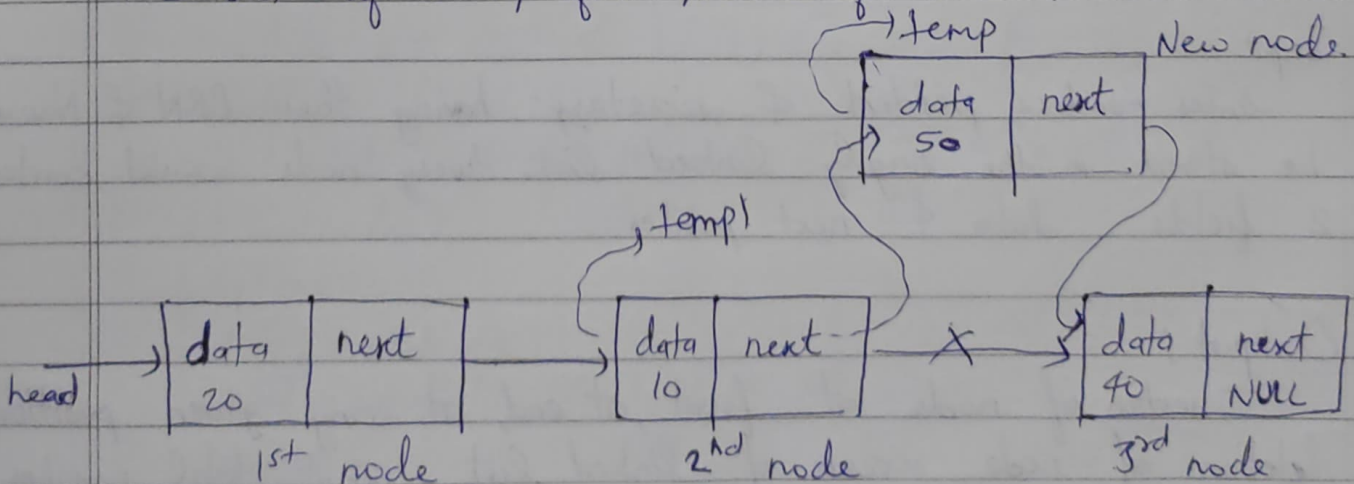 temp
New node.
data next
50
temp1
head
data next data next data next
20 10 40 NULL
1st node 2nd node 3rd node.